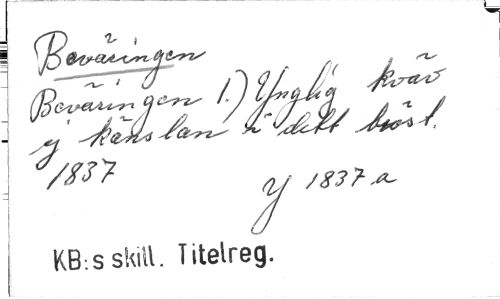 Beväringen
Beväringen 1.) Ynglig kväv
ej känslan i ditt bröst.
1837
Y 1837 a
KB:s skill. Titelreg.